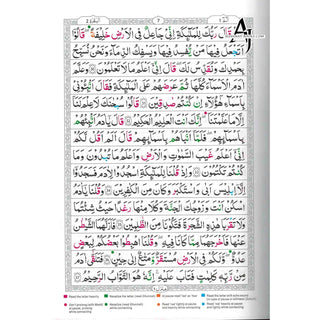 الٓمّٓ ١
7
البقرة ٢
قَالَ رَبُّكَ لِلْمَلٰٓئِكَةِ اِنِّیْ جَاعِلٌ فِی الْاَرْضِ خَلِیْفَةً ؕ قَالُوْۤا
اَتَجْعَلُ فِیْهَا مَنْ یُّفْسِدُ فِیْهَا وَیَسْفِكُ الدِّمَآءَ ۚ وَنَحْنُ نُسَبِّحُ
بِحَمْدِكَ وَنُقَدِّسُ لَكَ ؕ قَالَ اِنِّیْۤ اَعْلَمُ مَا لَا تَعْلَمُوْنَ ۝
وَعَلَّمَ اٰدَمَ الْاَسْمَآءَ كُلَّهَا ثُمَّ عَرَضَهُمْ عَلَى الْمَلٰٓئِكَةِ ۙ فَقَالَ اَنْۢبِـُٔوْنِیْ
بِاَسْمَآءِ هٰۤؤُلَآءِ اِنْ كُنْتُمْ صٰدِقِیْنَ ۝ قَالُوْا سُبْحٰنَكَ لَا عِلْمَ
لَنَاۤ اِلَّا مَا عَلَّمْتَنَا ؕ اِنَّكَ اَنْتَ الْعَلِیْمُ الْحَكِیْمُ ۝ قَالَ یٰۤاٰدَمُ اَنْۢبِئْهُمْ
بِاَسْمَآئِهِمْ ۚ فَلَمَّاۤ اَنْۢبَاَهُمْ بِاَسْمَآئِهِمْ ۙ قَالَ اَلَمْ اَقُلْ لَّكُمْ
اِنِّیْۤ اَعْلَمُ غَیْبَ السَّمٰوٰتِ وَالْاَرْضِ ۙ وَاَعْلَمُ مَا تُبْدُوْنَ وَمَا
كُنْتُمْ تَكْتُمُوْنَ ۝ وَاِذْ قُلْنَا لِلْمَلٰٓئِكَةِ اسْجُدُوْا لِاٰدَمَ فَسَجَدُوْۤا
اِلَّاۤ اِبْلِیْسَ ؕ اَبٰى وَاسْتَكْبَرَ ؗ وَكَانَ مِنَ الْكٰفِرِیْنَ ۝ وَقُلْنَا یٰۤاٰدَمُ
اسْكُنْ اَنْتَ وَزَوْجُكَ الْجَنَّةَ وَكُلَا مِنْهَا رَغَدًا حَیْثُ شِئْتُمَا ۪
وَلَا تَقْرَبَا هٰذِهِ الشَّجَرَةَ فَتَكُوْنَا مِنَ الظّٰلِمِیْنَ ۝ فَاَزَلَّهُمَا الشَّیْطٰنُ
عَنْهَا فَاَخْرَجَهُمَا مِمَّا كَانَا فِیْهِ ۪ وَقُلْنَا اهْبِطُوْا بَعْضُكُمْ لِبَعْضٍ
عَدُوٌّ ۚ وَلَكُمْ فِی الْاَرْضِ مُسْتَقَرٌّ وَّمَتَاعٌ اِلٰى حِیْنٍ ۝ فَتَلَقّٰۤى اٰدَمُ
مِنْ رَّبِّهٖ كَلِمٰتٍ فَتَابَ عَلَیْهِ ؕ اِنَّهٗ هُوَ التَّوَّابُ الرَّحِیْمُ ۝